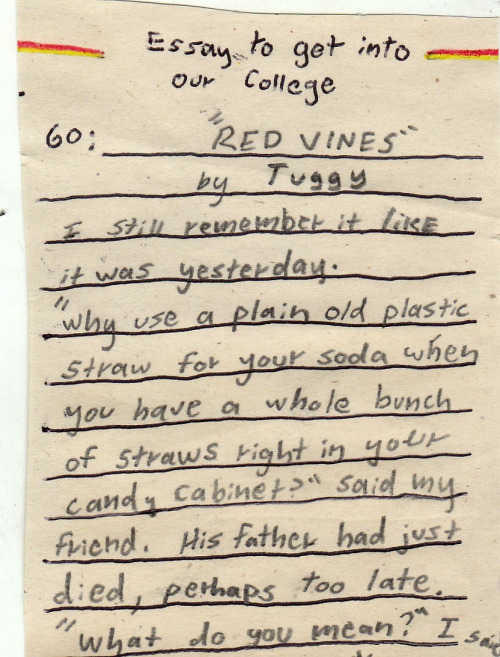 Essay to get into
our College
60: "RED VINES"
by Tuggy
I still remember it like
it was yesterday.
"Why use a plain old plastic
straw for your soda when
you have a whole bunch
of straws right in your
candy cabinet?" said my
friend. His father had just
died, perhaps too late.
"What do you mean?" I said